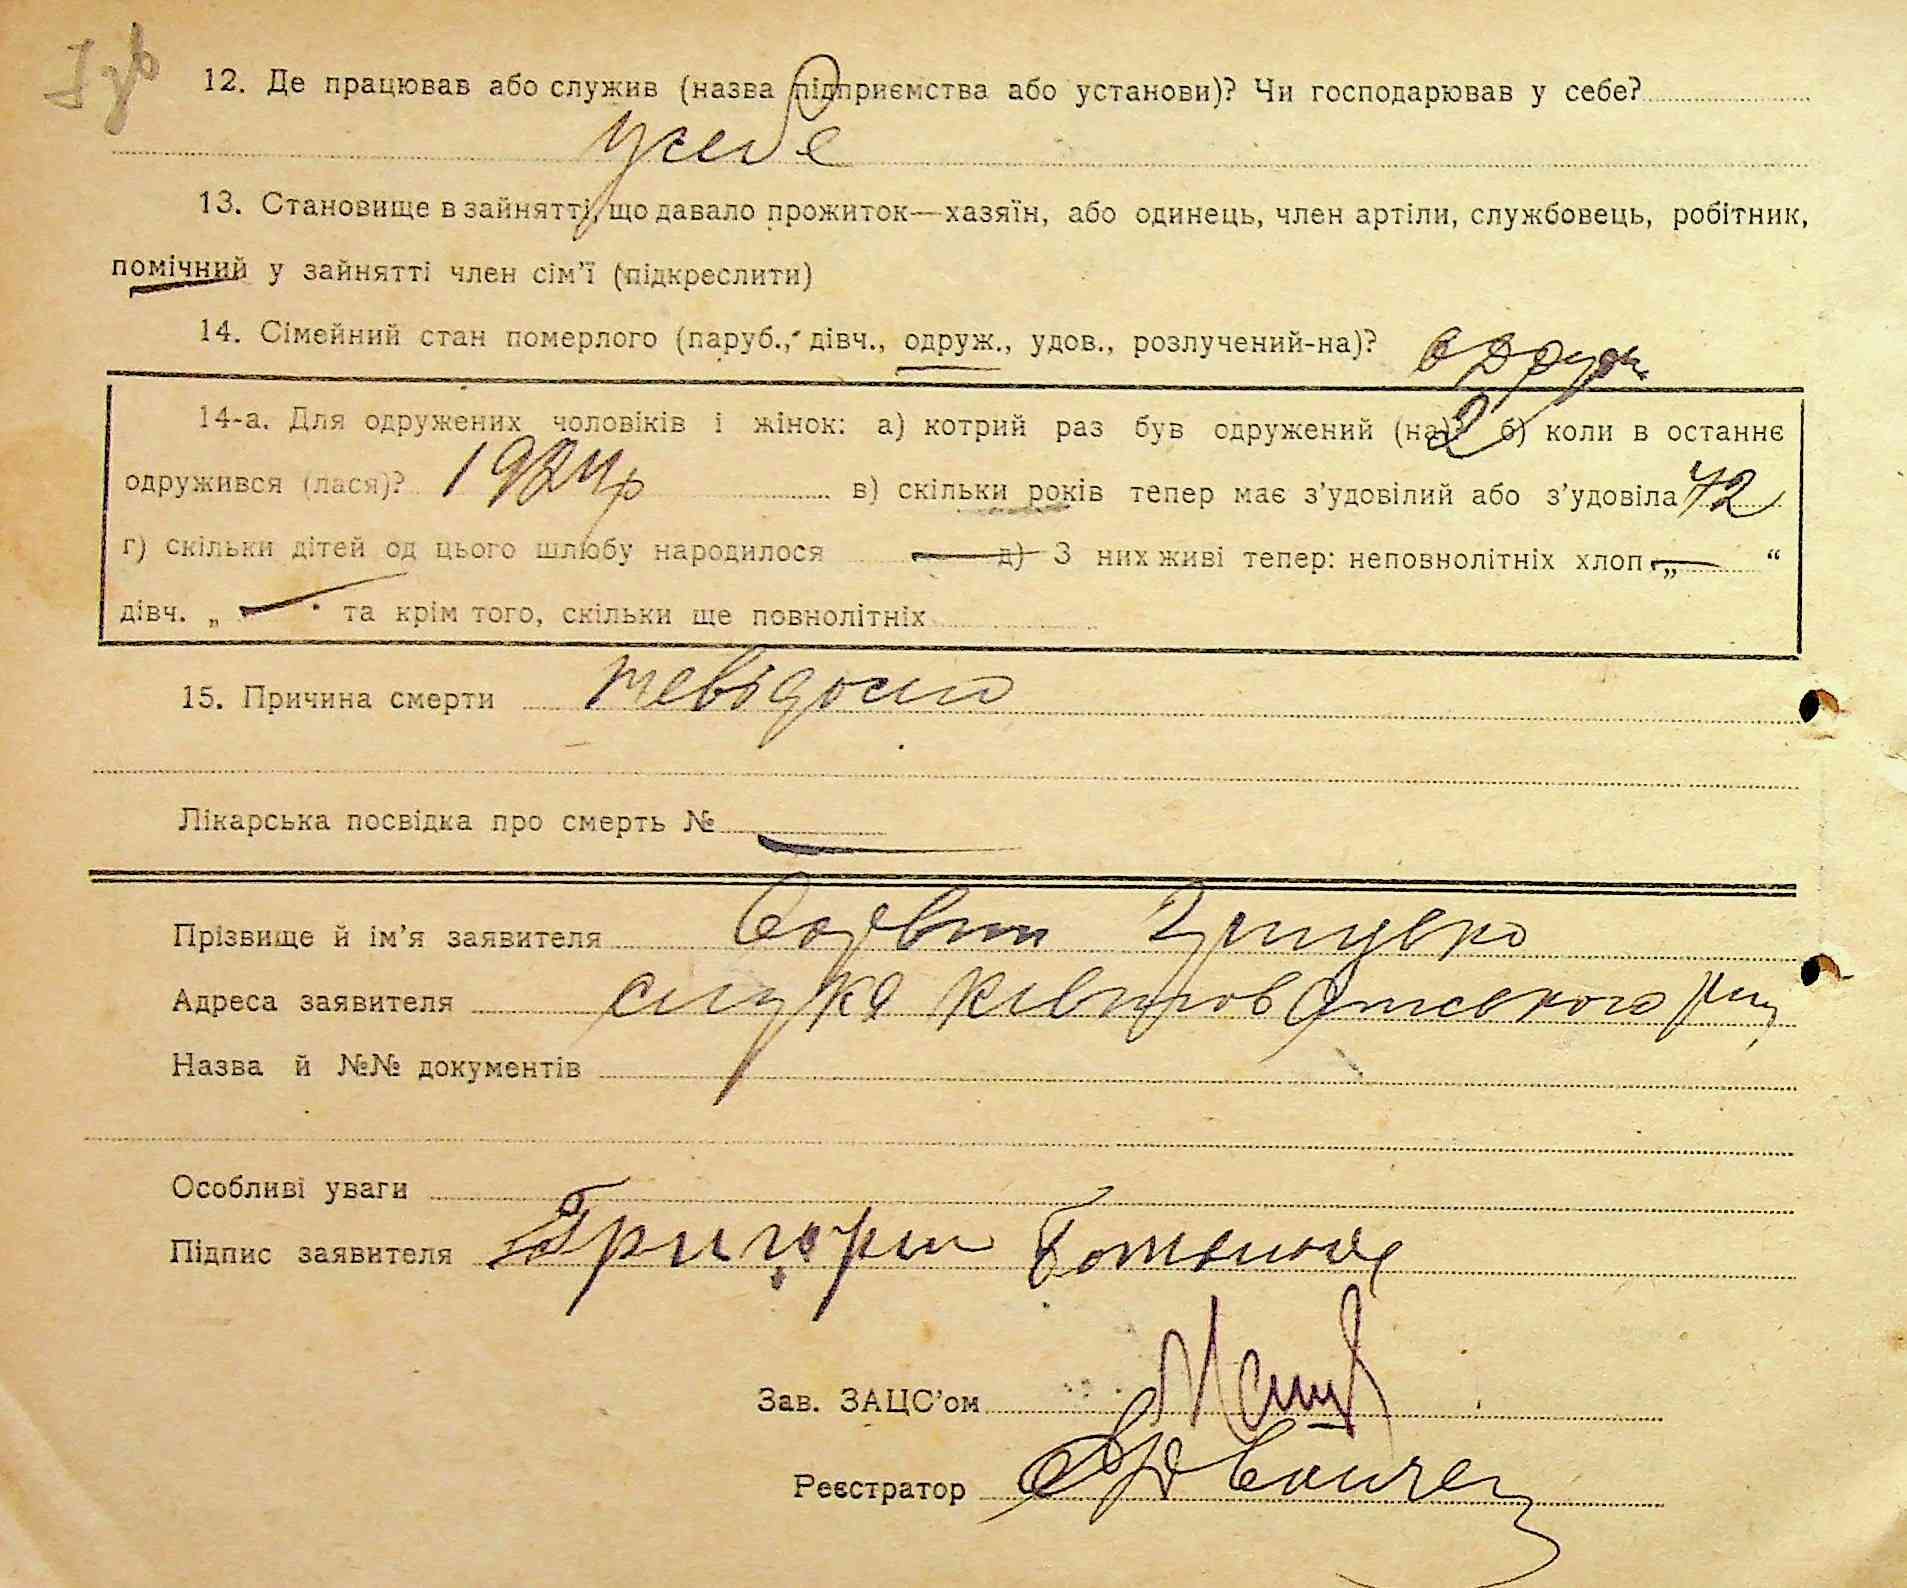 12. Де працював або служив (назва підприємства або установи)? Чи господарював у себе?
у себе
13. Становище в зайнятті, що давало прожиток—хазяїн, або одинець, член артіли, службовець, робітник,
помічний у зайнятті член сім’ї (підкреслити)
14. Сімейний стан померлого (паруб., дівч., одруж., удов., розлучений-на)? одруж.
14-а. Для одружених чоловіків і жінок: а) котрий раз був одружений (на)? 2 б) коли в останнє
одружився (лася)? 1924р в) скільки років тепер має з’удовілий або з’удовіла 42
г) скільки дітей од цього шлюбу народилося — д) З них живі тепер: неповнолітніх хлоп „ — “
дівч. „ — та крім того, скільки ще повнолітніх
15. Причина смерти невідомо
Лікарська посвідка про смерть № —
Прізвище й ім’я заявителя
Адреса заявителя
Назва й №№ документів
Особливі уваги
Підпис заявителя Григорий
Зав. ЗАЦС’ом
Реєстратор